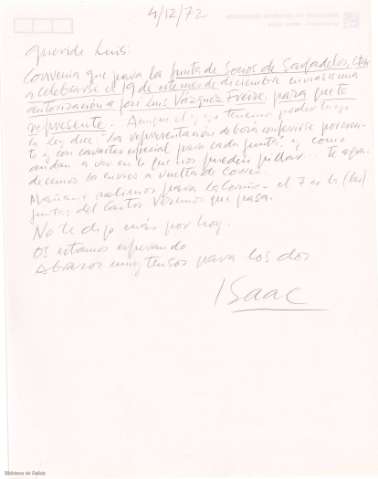 4/12/72
Querido Luis:
Convenía que para la Junta de Socios de Sargadelos,
a celebrarse el 19 de diciembre enviases una
autorización a José Luis Vázquez Freire, para que te
represente. Aunque él y yo tenemos poder tuyo
la ley dice "La representación deberá conferirse por escri-
to y con carácter especial para cada junta" y como
andan a ver en lo que nos pueden pillar te agra-
decemos la envíes a vuelta de correo.
Mañana salimos para la Coruña. el 7 es la
junta del Castro Veremos que pasa.
No te digo más por hoy.
Os estamos esperando
Abrazos muy tensos para los dos
Isaac
Biblioteca de Galicia